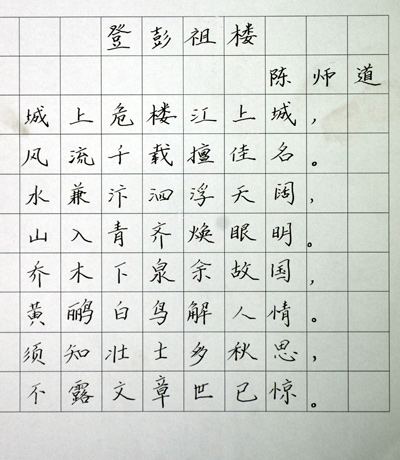 登彭祖楼
陈师道
城上危楼江上城，
风流千载擅佳名。
水兼汴泗浮天阔，
山入青齐焕眼明。
乔木下泉余故国，
黄鹂白鸟解人情。
须知壮士多秋思，
不露文章世已惊。